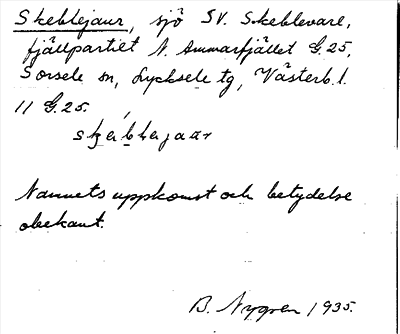 Skeblejaur, sjö SV. Skeblevare,
fjällpartiet N. Ammarfjället G. 25,
Sorsele sn, Lycksele tg, Västerb. l.
11 G. 25.
Namnets uppkomst och betydelse
obekant.
B. Nygren 1935.